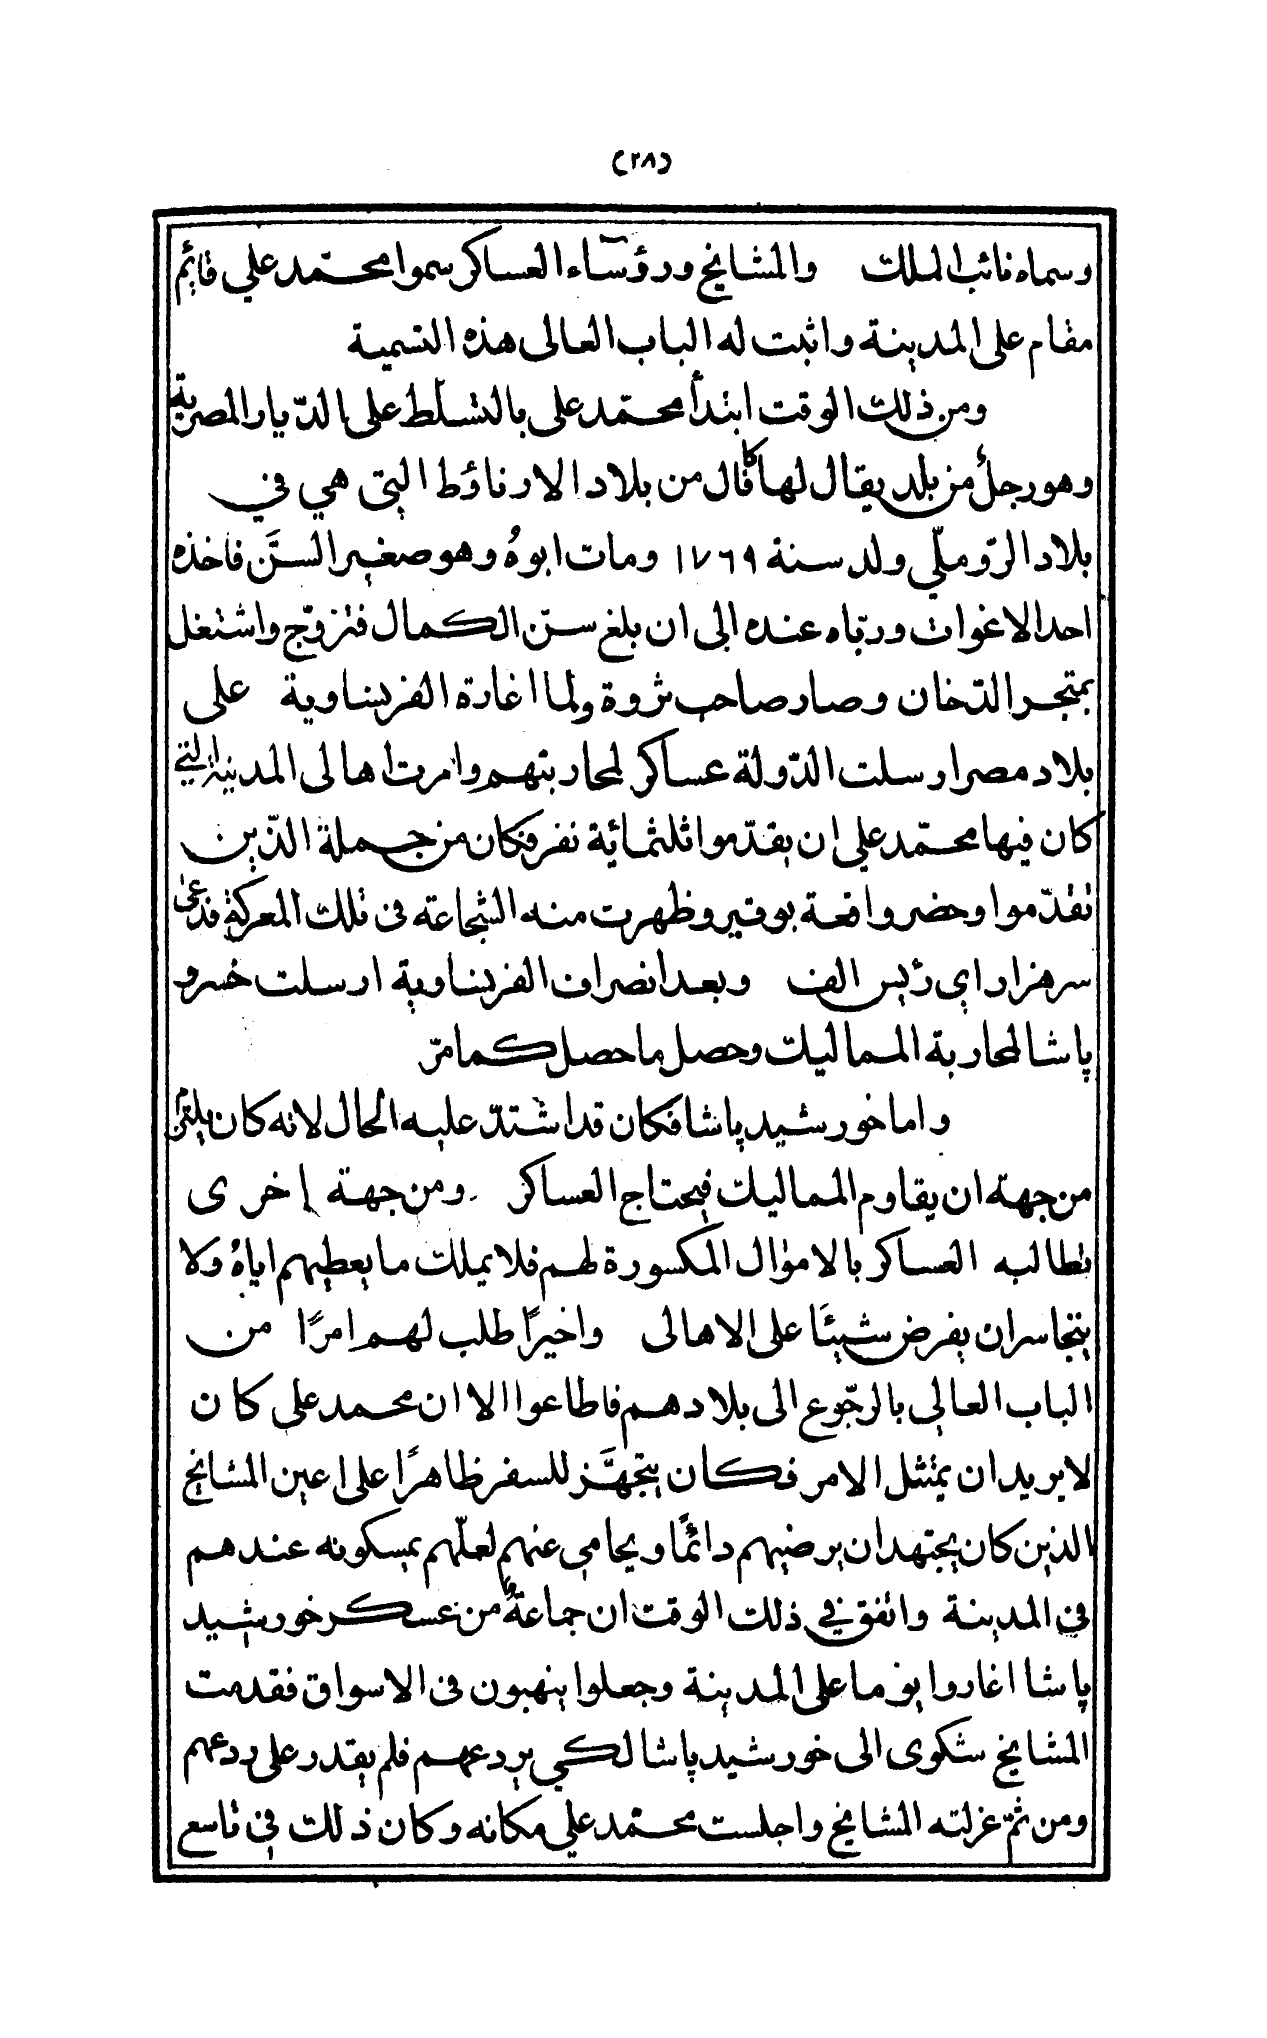 (٢٨)
وسماه نائب الملك والمشايخ ورؤسآء العساكر سموا محمّد علي قائم
مقام على المدينة واثبت له الباب العالى هذه التسمية
ومن ذلك الوقت ابتدأ محمّد على بالتسلّط على الدّيار المصرية
وهو رجلٌ من بلد يقال لها كاڤال من بلاد الارناؤط التي هي في
بلاد الرّوملّي ولد سنة ١٧٦٩ ومات ابوهُ وهو صغير السّن فاخذه
احد الاغوات وربّاه عنده الى ان بلغ سنّ الكمال فتزوّج واشتغل
بمتجر الدّخان وصار صاحب ثروة ولما اغارة الفرنساوية على
بلاد مصر ارسلت الدّولة عساكر لمحاربتهم وامرت اهالى المدينة التي
كان فيها محمّد علي ان يقدّموا ثلثمائة نفر فكان من جملة الذّين
تقدّموا وحضر واقعة بوقير وظهرت منه الشجاعة فى تلك المعركة فدعى
سرهزار اي رئيس الف وبعد انصراف الفرنساوية ارسلت خسرو
پاشا لمحاربة المماليك وحصل ما حصل كما مرّ
واما خورشيد پاشا فكان قد اشتدّ عليه الحال لانه كان يلتزم
من جهة ان يقاوم المماليك فيحتاج العساكر ومن جهة إخرى
تطالبه العساكر بالاموال المكسورة لهم فلا يملك ما يعطيهم اياهُ ولا
يتجاسر ان يفرض شيئًا على الاهالى واخيرًا طلب لهم امرًا من
الباب العالي بالرجّوع الى بلادهم فاطاعوا الا ان محمد على كان
لا يريد ان يمتثل الامر فكان يتجهّز للسفر ظاهرًا على اعين المشايخ
الذين كان يجتهد ان يرضيهم دائمًا ويحامي عنهم لعلّهم يمسكونه عندهم
فى المدينة واتفق في ذلك الوقت ان جماعةً من عسكر خورشيد
پاشا اغاروا يوما على المدينة وجعلوا ينهبون فى الاسواق فقدمت
المشايخ شكوى الى خورشيد پاشا لكي يردعهم فلم يقدر على ردعهم
ومن ثمّ عزلته المشايخ واجلست محمّد علي مكانه وكان ذلك في تاسع